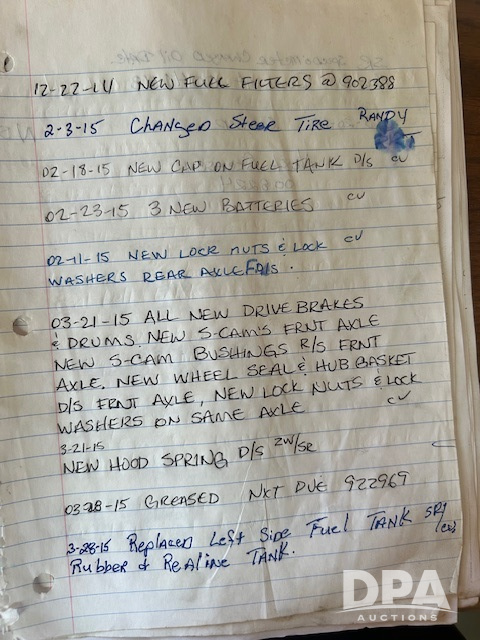 12-22-14 NEW FUEL FILTERS @ 902388
2-3-15 Changed Steer Tire RANDY
02-18-15 NEW CAP ON FUEL TANK D/S CV
02-23-15 3 NEW BATTERIES CV
02-11-15 NEW LOCK NUTS & LOCK CV
WASHERS REAR AXLE
03-21-15 ALL NEW DRIVE BRAKES
& DRUMS, NEW S-CAM'S FRNT AXLE
NEW S-CAM BUSHINGS R/S FRNT
AXLE. NEW WHEEL SEAL & HUB GASKET
D/S FRNT AXLE, NEW LOCK NUTS & LOCK
WASHERS ON SAME AXLE CV
3-21-15
NEW HOOD SPRING D/S
03-28-15 GREASED NXT DUE 922969
3-28-15 Replaced Left Side Fuel TANK
Rubber & Realine TANK.
DPA
AUCTIONS